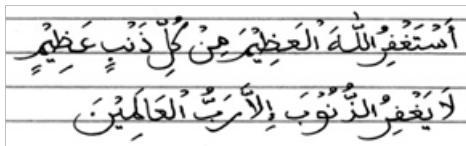 أَسْتَغْفِرُ اللّٰهَ الْعَظِيْمَ مِنْ كُلِّ ذَنْبٍ عَظِيْمٍ
لَا يَغْفِرُ الذُّنُوْبَ إِلَّا رَبُّ الْعَالَمِيْنَ